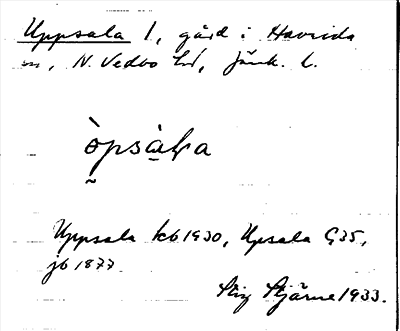 Uppsala 1, gård i Haurida
sn, N. Vedbo hd, Jönk. l.
òpsàḷa
Uppsala kb 1930, Upsala G35,
jb 1877
Stig Stjärne 1933.